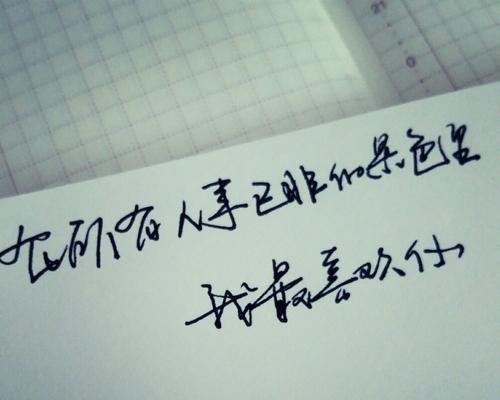 21
在所有人事已非的景色里
我最喜欢你